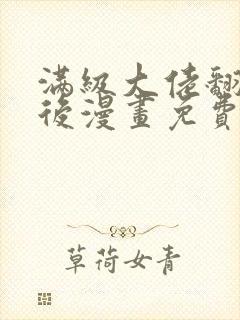 滿級大佬翻
後漫畫免費
草荷女青